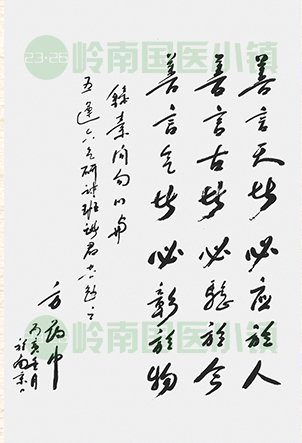 23·26 岭南国医小镇
善言天者必应於人
善言古者必驗於今
善言气者必彰於物
錄素问句以与
五运六气研討班諸君共勉之
方药中
於南京
岭南国医小镇